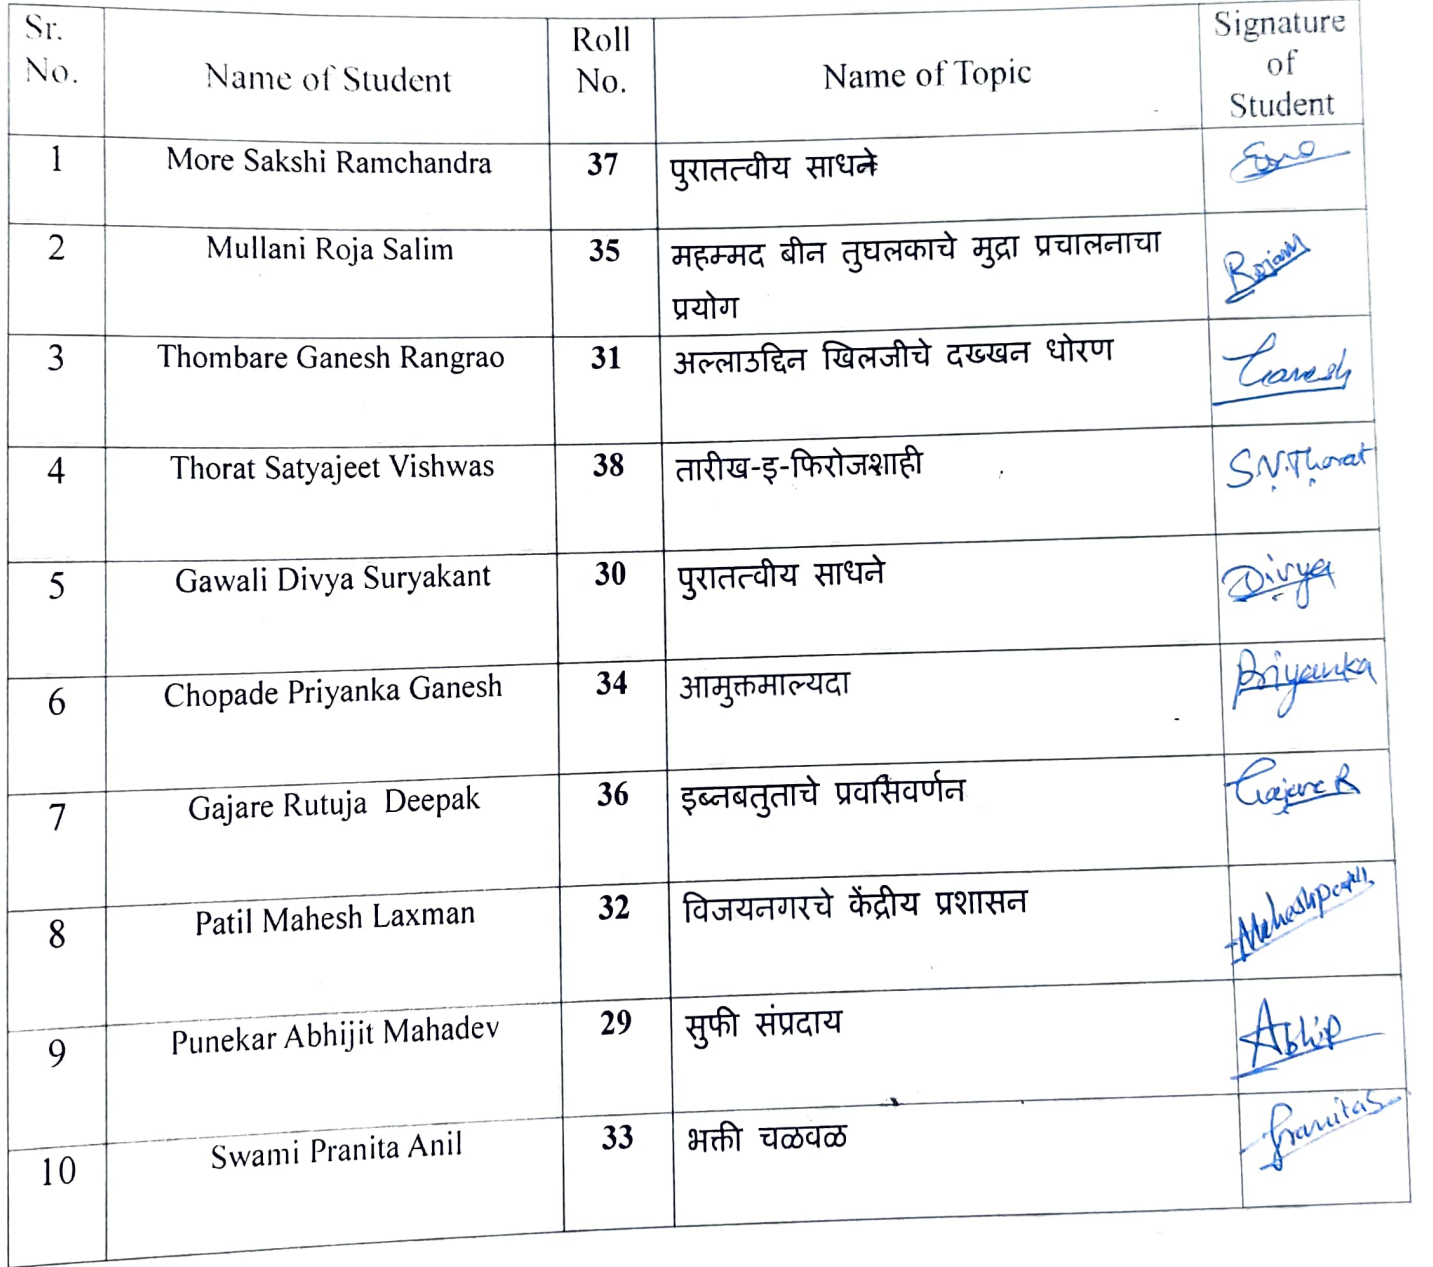 Sr. No. Name of Student Roll No. Name of Topic Signature of Student
1 More Sakshi Ramchandra 37 पुरातत्वीय साधने
2 Mullani Roja Salim 35 महम्मद बीन तुघलकाचे मुद्रा प्रचालनाचा
प्रयोग
3 Thombare Ganesh Rangrao 31 अल्लाउद्दिन खिलजीचे दख्खन धोरण Ganesh
4 Thorat Satyajeet Vishwas 38 तारीख-इ-फिरोजशाही S.V.Thorat
5 Gawali Divya Suryakant 30 पुरातत्वीय साधने Divya
6 Chopade Priyanka Ganesh 34 आमुक्तमाल्यदा Priyanka
7 Gajare Rutuja Deepak 36 इब्नबतुताचे प्रवासवर्णन Gajare R
8 Patil Mahesh Laxman 32 विजयनगरचे केंद्रीय प्रशासन Maheshpatil
9 Punekar Abhijit Mahadev 29 सुफी संप्रदाय
10 Swami Pranita Anil 33 भक्ती चळवळ PranitaS